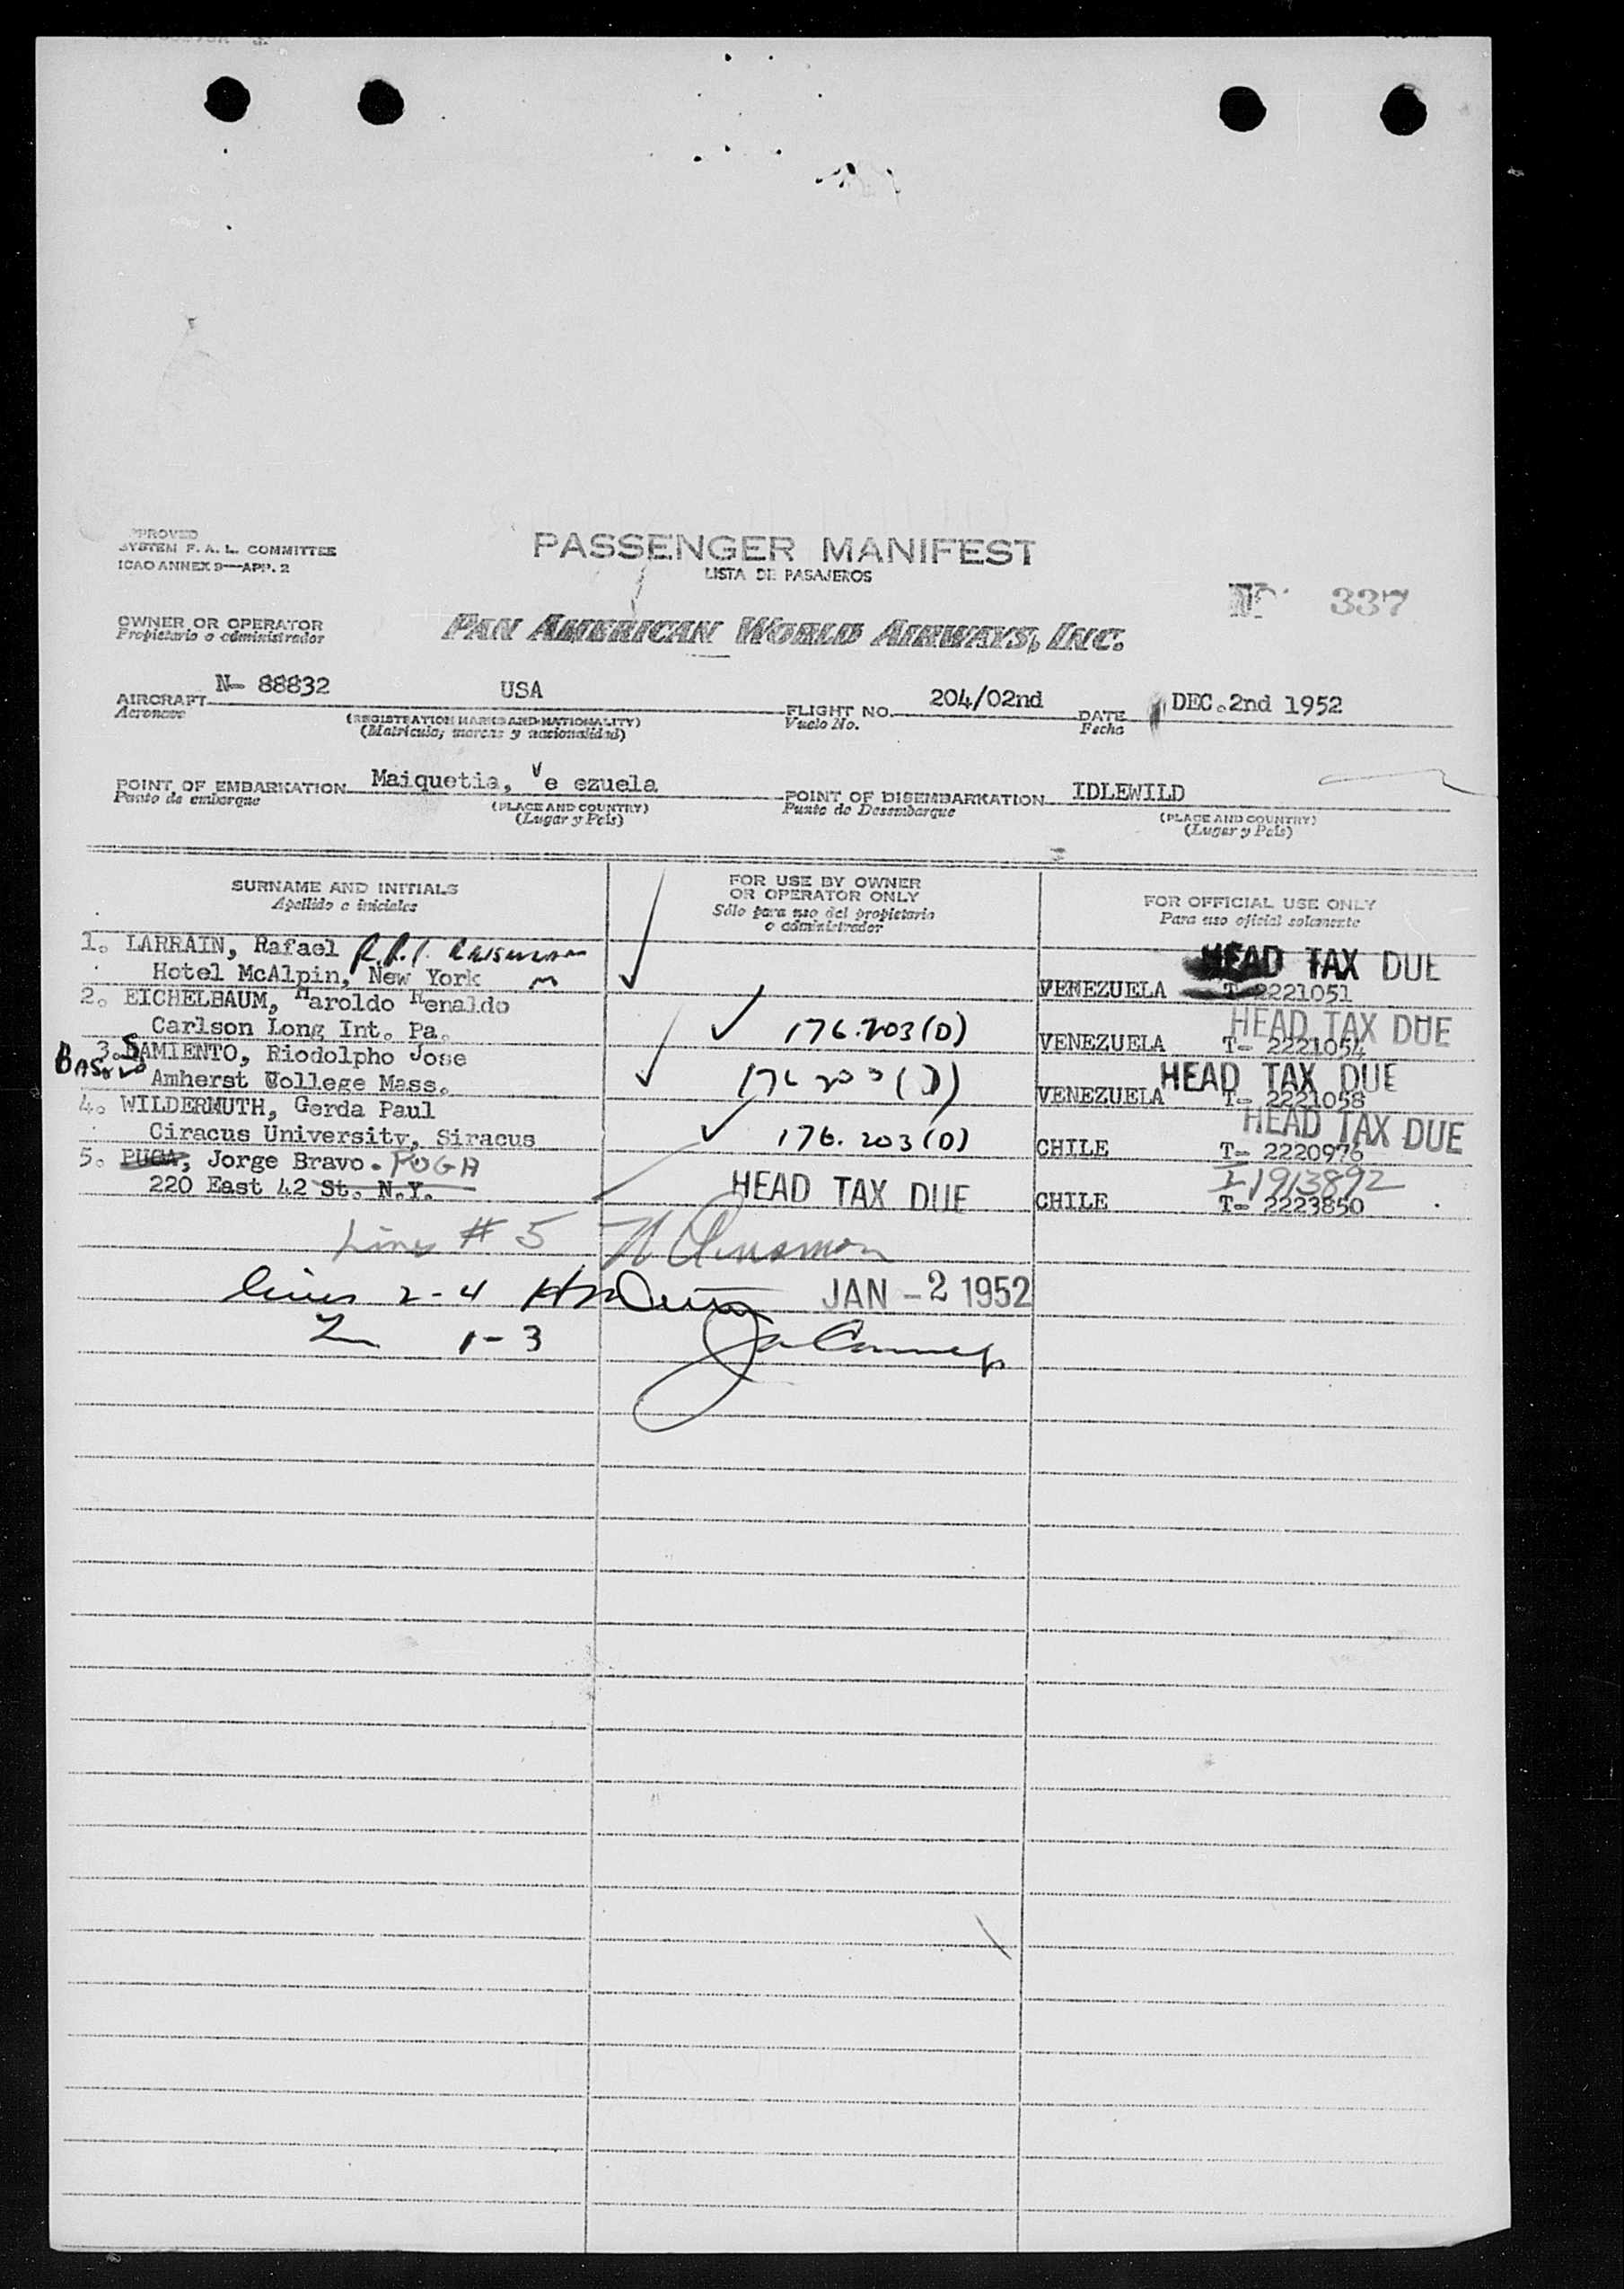 PROVED
SYSTEM F. A. L. COMMITTEE
ICAO ANNEX 9—APP. 2
PASSENGER MANIFEST
LISTA DE PASAJEROS
337
OWNER OR OPERATOR
Propietario o administrador
PAN AMERICAN WORLD AIRWAYS, INC.
AIRCRAFT N- 88832 USA FLIGHT NO. 204/02nd DATE DEC. 2nd 1952
Aeronave (REGISTRATION MARKS AND NATIONALITY) Vuelo No. Fecha
(Matricula, marcas y nacionalidad)
POINT OF EMBARKATION Maiquetia, Ve ezuela POINT OF DISEMBARKATION IDLEWILD
Punto de embarque (PLACE AND COUNTRY) Punto de Desembarque (PLACE AND COUNTRY)
(Lugar y País) (Lugar y País)
SURNAME AND INITIALS FOR USE BY OWNER OR OPERATOR ONLY FOR OFFICIAL USE ONLY
Apellido e iniciales Sólo para uso del propietario o administrador Para uso oficial solamente
1. LARRAIN, Rafael HEAD TAX DUE
Hotel McAlpin, New York VENEZUELA T- 2221051
2. EICHELBAUM, Haroldo Renaldo HEAD TAX DUE
Carlson Long Int. Pa. 176.203(D) VENEZUELA T- 2221054
3. SAMIENTO, Riodolpho Jose HEAD TAX DUE
Amherst College Mass. 176 203 (D) VENEZUELA T- 2221058
4. WILDERMUTH, Gerda Paul HEAD TAX DUE
Ciracus University, Siracus 176.203(D) CHILE T- 2220976
5. PUGA, Jorge Bravo. PUGA I 1913892
220 East 42 St. N.Y. HEAD TAX DUE CHILE T- 2223850
Line # 5
lines 2-4 JAN - 2 1952
1-3